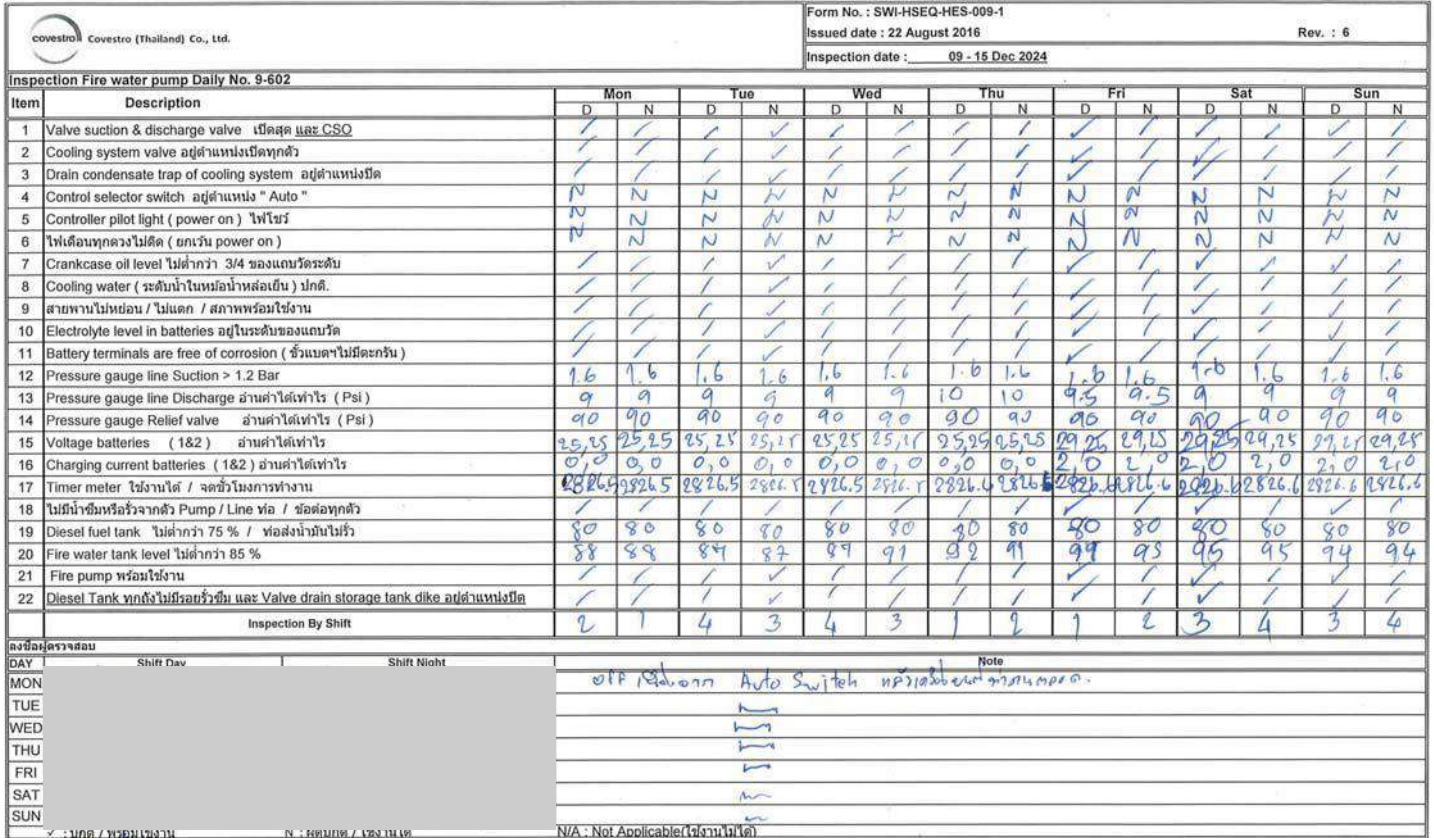 covestro Covestro (Thailand) Co., Ltd.
Form No. : SWI-HSEQ-HES-009-1
Issued date : 22 August 2016 Rev. : 6
Inspection date : 09 - 15 Dec 2024
Inspection Fire water pump Daily No. 9-602
Item Description Mon Tue Wed Thu Fri Sat Sun
D N D N D N D N D N D N D N
1 Valve suction & discharge valve เปิดสุด และ CSO
2 Cooling system valve อยู่ตำแหน่งเปิดทุกตัว
3 Drain condensate trap of cooling system อยู่ตำแหน่งปิด
4 Control selector switch อยู่ตำแหน่ง " Auto " N N N N N N N N N N N N N N
5 Controller pilot light ( power on ) ไฟโชว์ N N N N N N N N N N N N N N
6 ไฟเตือนทุกดวงไม่ติด ( ยกเว้น power on ) N N N N N N N N N N N N N N
7 Crankcase oil level ไม่ต่ำกว่า 3/4 ของแถบวัดระดับ
8 Cooling water ( ระดับน้ำในหม้อน้ำหล่อเย็น ) ปกติ.
9 สายพานไม่หย่อน / ไม่แตก / สภาพพร้อมใช้งาน
10 Electrolyte level in batteries อยู่ในระดับของแถบวัด
11 Battery terminals are free of corrosion ( ขั้วแบตฯไม่มีตะกรัน )
12 Pressure gauge line Suction > 1.2 Bar 1.6 1.6 1.6 1.6 1.6 1.6 1.6 1.6 1.6 1.6 1.6 1.6 1.6 1.6
13 Pressure gauge line Discharge อ่านค่าได้เท่าไร ( Psi ) 9 9 9 9 9 9 10 10 9.5 9.5 9 9 9 9
14 Pressure gauge Relief valve อ่านค่าได้เท่าไร ( Psi ) 90 90 90 90 90 90 90 90 90 90 90 90 90 90
15 Voltage batteries ( 1&2 ) อ่านค่าได้เท่าไร 25,25 25,25 25,25 25,25 25,25 25,25 25,25 25,25 29,25 29,25 29,25 29,25 29,25 29,25
16 Charging current batteries ( 1&2 ) อ่านค่าได้เท่าไร 0,0 0,0 0,0 0,0 0,0 0,0 0,0 0,0 2,0 2,0 2,0 2,0 2,0 2,0
17 Timer meter ใช้งานได้ / จดชั่วโมงการทำงาน 2826.5 2826.5 2826.5 2826.5 2826.5 2826.5 2826.6 2826.6 2826.6 2826.6 2826.6 2826.6 2826.6 2826.6
18 ไม่มีน้ำซึมหรือรั่วจากตัว Pump / Line ท่อ / ข้อต่อทุกตัว
19 Diesel fuel tank ไม่ต่ำกว่า 75 % / ท่อส่งน้ำมันไม่รั่ว 80 80 80 80 80 80 80 80 80 80 80 80 80 80
20 Fire water tank level ไม่ต่ำกว่า 85 % 88 88 87 87 91 92 91 95 95 95 94 94
21 Fire pump พร้อมใช้งาน
22 Diesel Tank ทุกถังไม่มีรอยรั่วซึม และ Valve drain storage tank dike อยู่ตำแหน่งปิด
Inspection By Shift 2 1 4 3 4 3 1 2 1 2 3 4 3 4
ลงชื่อผู้ตรวจสอบ
DAY Shift Day Shift Night Note
MON off เนื่องจาก Auto Switch
TUE
WED
THU
FRI
SAT
SUN
✓ : ปกติ / พร้อมใช้งาน N : ผิดปกติ / ใช้งานได้ N/A : Not Applicable(ใช้งานไม่ได้)